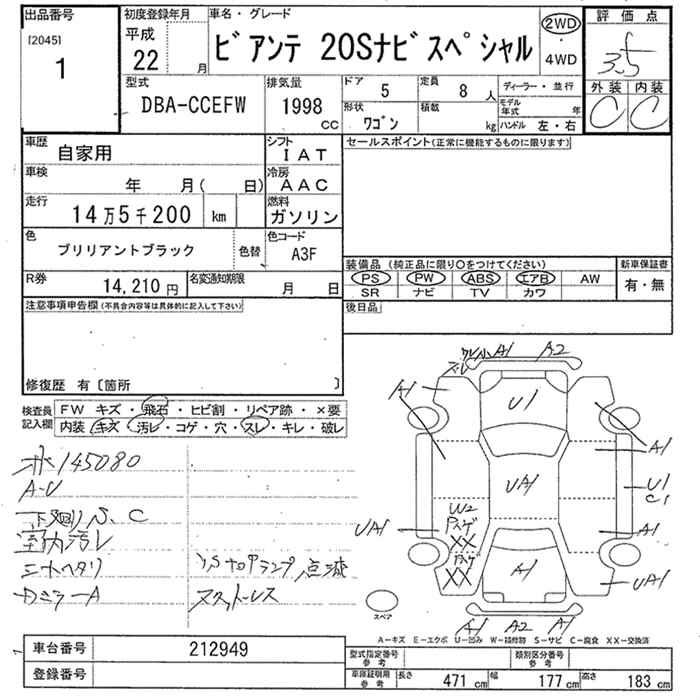 出品番号
[2045]
1
初度登録年月
平成
22
月
車名・グレード
ビアンテ 20Sナビスペシャル
2WD
・
4WD
評価点
3.5
外装 内装
C C
型式
DBA-CCEFW
排気量
1998
cc
ドア
5
定員
8 人
形状
ワゴン
積載
kg
ディーラー・並行
モデル年式 年
ハンドル 左・右
車歴
自家用
シフト
IAT
車検
年 月( 日)
冷房
AAC
走行
14万5千200 km
燃料
ガソリン
色
ブリリアントブラック
色替
色コード
A3F
R券
14,210 円
名変通知期限
月 日
セールスポイント(正常に機能するものに限ります)
装備品 (純正品に限り○をつけてください)
PS PW ABS エアB AW
SR ナビ TV カワ
新車保証書
有・無
後日品
注意事項申告欄(不具合内容等は具体的に記入して下さい)
修復歴 有〔箇所 〕
検査員
記入欄
FW キズ・飛石・ヒビ割・リペア跡・×要
内装 キズ・汚レ・コゲ・穴・スレ・キレ・破レ
145080
A-U
下廻りS、C
室内汚レ
シートヘタリ
点滅
A1 A2
A1
U1
A1
UA1
U1
C1
W2
XX
XX
UA1
A1
A1
UA1
A1 A2 A1
スペア
A-キズ E-エクボ U-凹み W-補修跡 S-サビ C-腐食 XX-交換済
車台番号
212949
登録番号
型式指定番号
参考
類別区分番号
参考
車庫証明用
参考
長さ 471 cm
幅 177 cm
高さ 183 cm